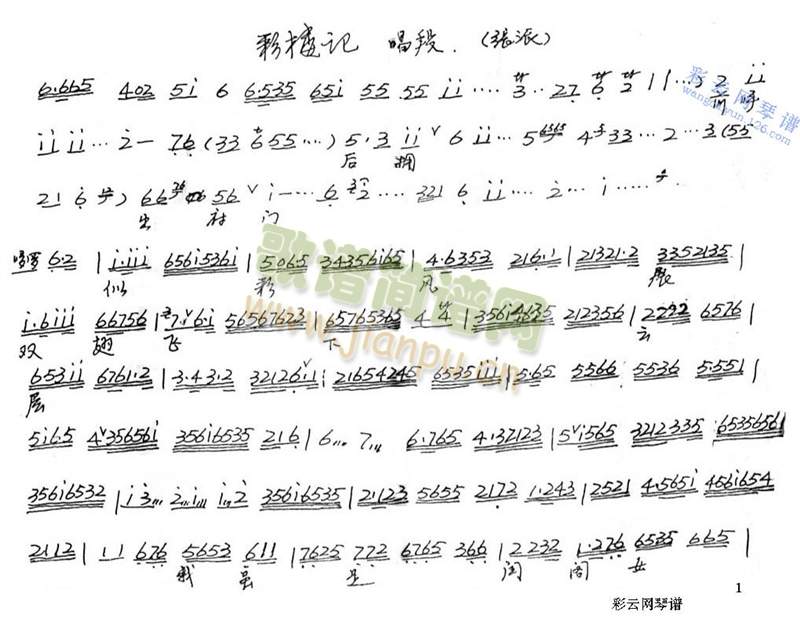 彩楼记 唱段.(张派)
6.665 402 5i 6 6.535 65i 55 55 ii···· 3··· 27 6 2 ||···) 2 ii
前 呼
ii ii··· 2— 76 (33 655···) 5.3 ii ˅ 6 ii··· 5 6565 4 33··· 2···3(55
后 拥
21 6 ) 66 56 ˅ i—··· 6 2···· 321 6 ii···· 2··· i······
出 府 门
6.2 | i.iii 656i536i | 5065 34356i65 | 4.6353 216.1 | 21321.2 3352135 |
似 彩 凤
i.6iii 66756 | 7.˅6.i 56567623 | 65765365 4 4 | 35614635 212356 | 2222 6576 |
双 翅 飞 下 云
653ii 6761.2 | 3.43.2 32126.1 | 21654245 6535iii | 5.65 5566 5536 5.551 |
层
5i6.5 4˅35656i 356i6535 216 | 6... 7... 6.765 4.32123 | 5˅i565 3212335 6535656i
356i6532 | i3... 2...i... i.2 356i6535 | 2.123 5655 2172 1.243 | 2521 4.565i 4661654
2112 | 11 676 5653 611 | 7625 772 6765 366 | 2232 1.276 6535 665 |
我 虽 是 闺 阁 女
1
彩云网琴谱
彩云网琴谱
wangcaiyun.126.com
歌谱简谱网
www.jianpu.cn